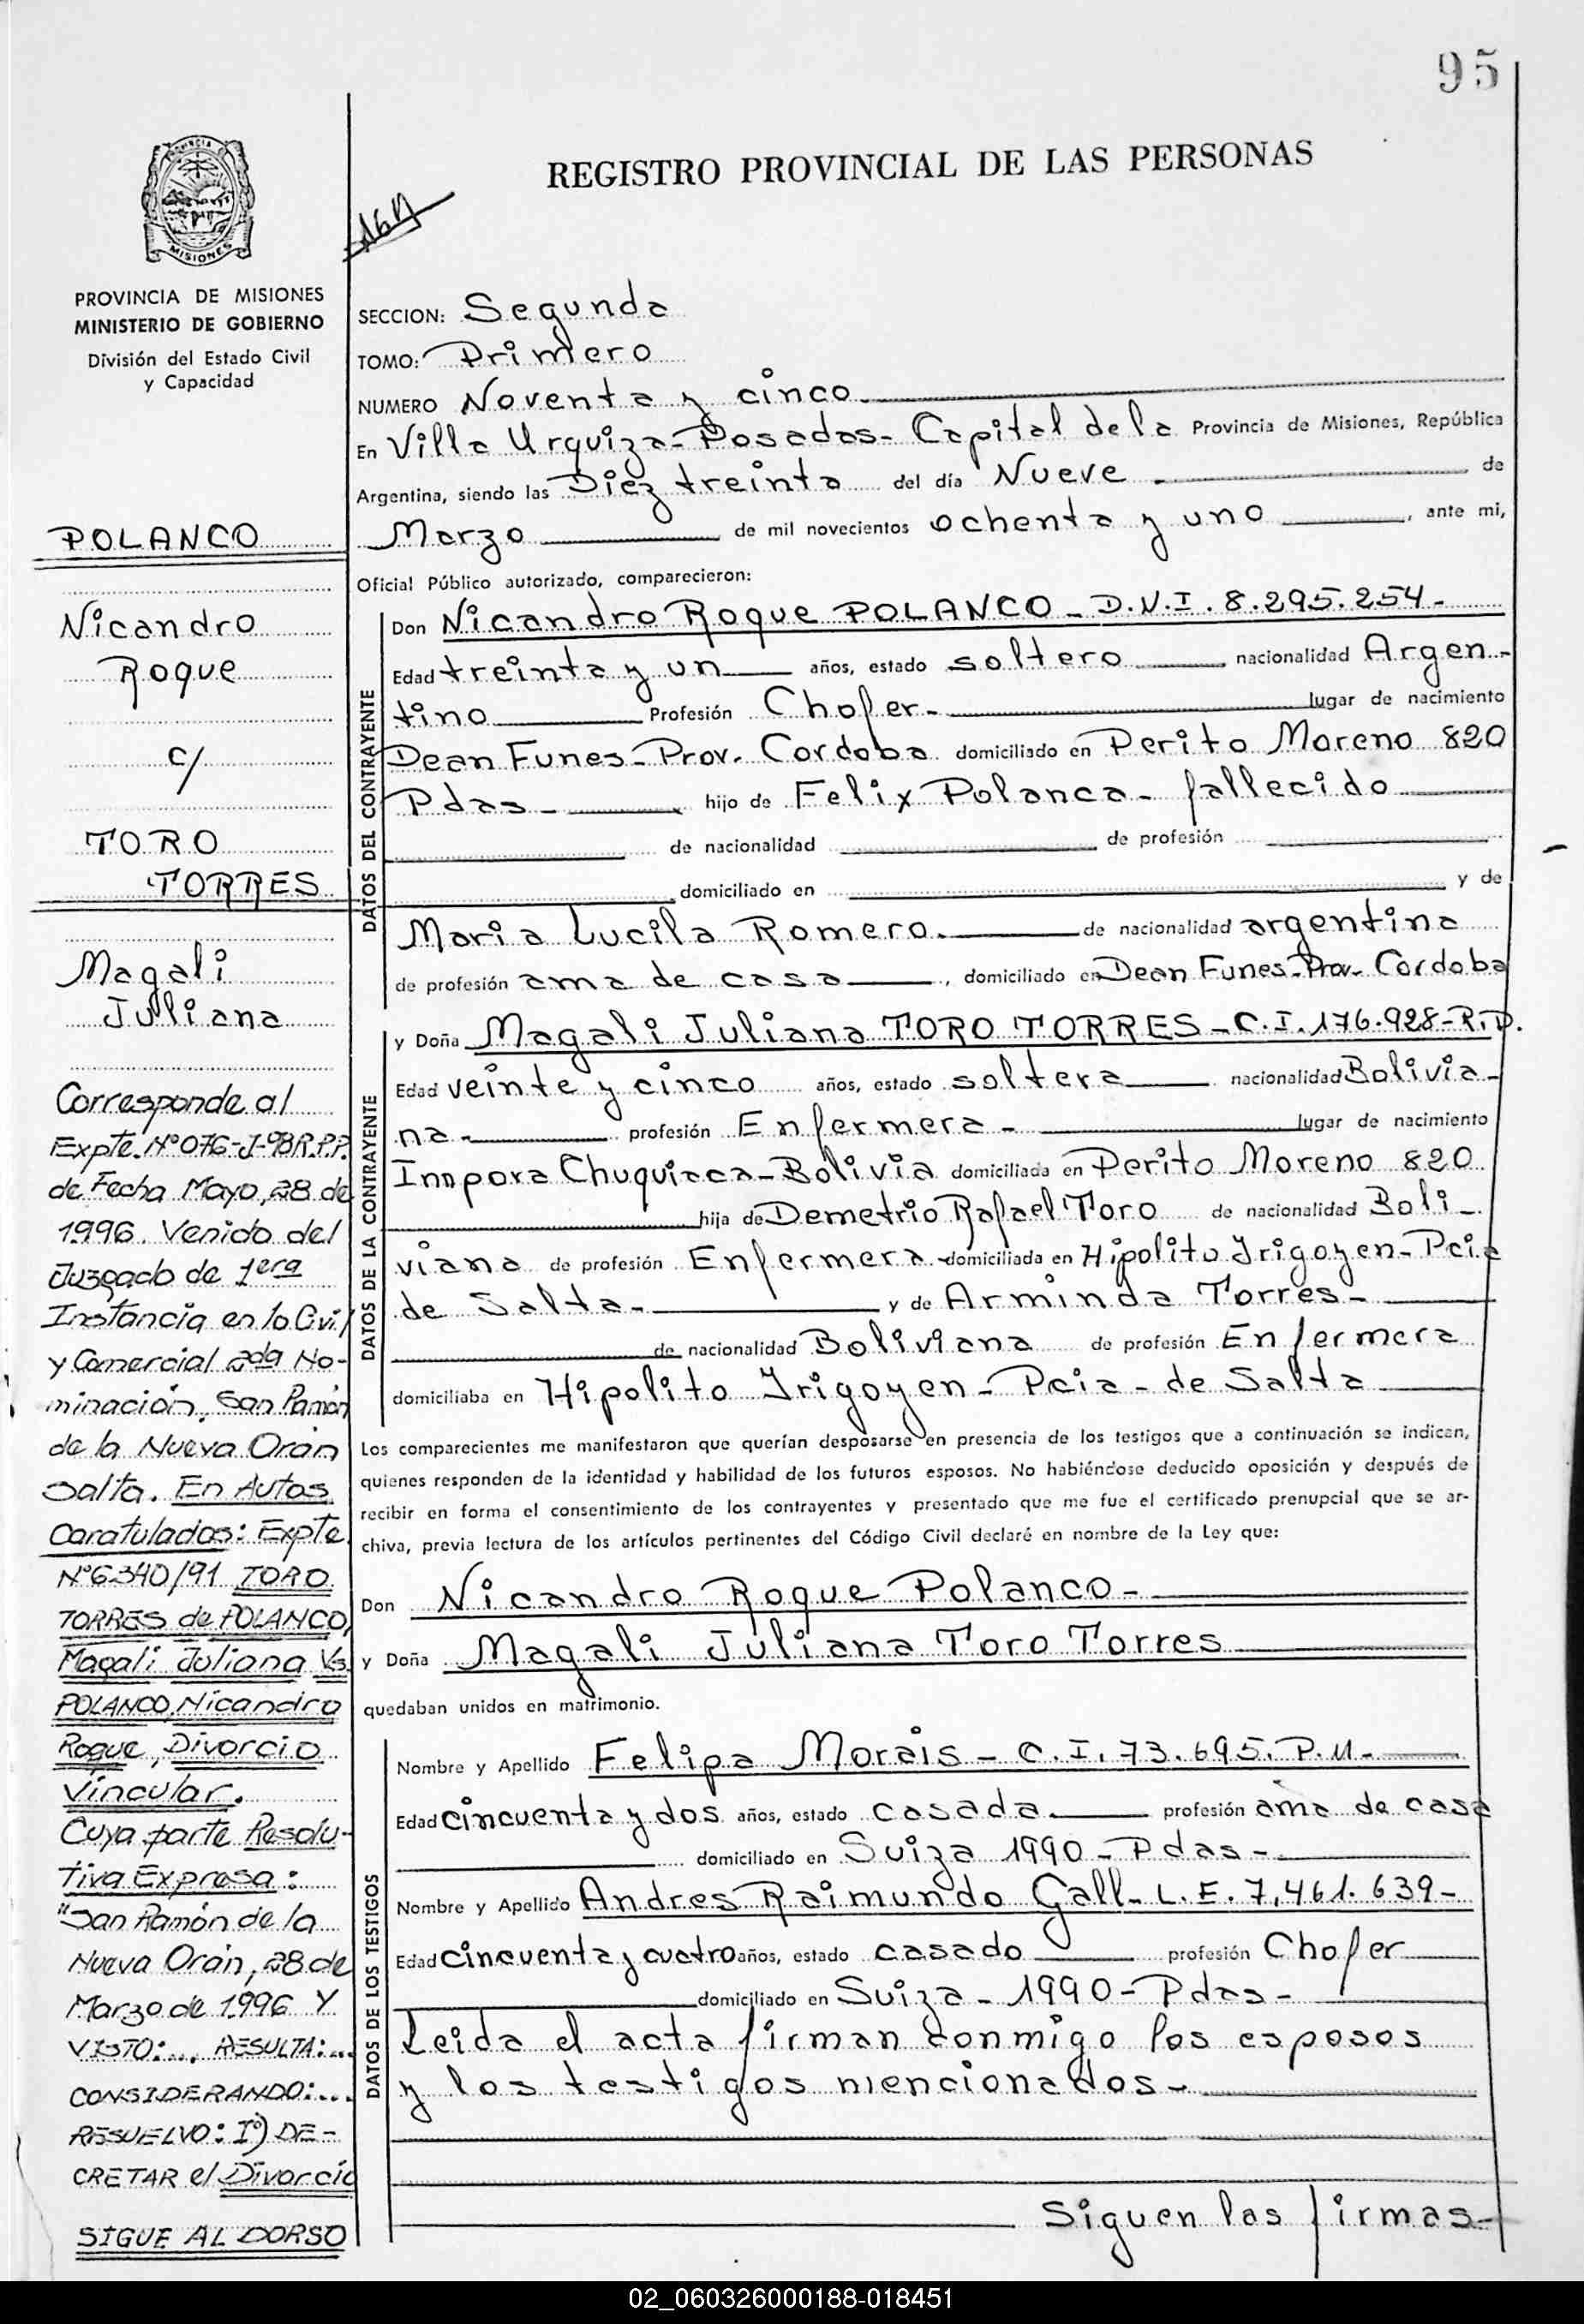 95
REGISTRO PROVINCIAL DE LAS PERSONAS
PROVINCIA
MISIONES
PROVINCIA DE MISIONES
MINISTERIO DE GOBIERNO
División del Estado Civil
y Capacidad
POLANCO
Nicandro
Roque
c/
TORO
TORRES
Magali
Juliana
Corresponde al
Expte. Nº 076-J-98 R.P.P.
de Fecha Mayo, 28 de
1996. Venido del
Juzgado de 1era
Instancia en lo Civil
y Comercial 2da No-
minación, San Ramón
de la Nueva Orán
Salta. En Autos
Caratulados: Expte
Nº 6340/91 TORO
TORRES de POLANCO,
Magali Juliana Vs.
POLANCO, Nicandro
Roque, Divorcio
Vincular.
Cuya parte Resolu-
tiva Expresa:
"San Ramón de la
Nueva Orán, 28 de
Marzo de 1996 Y
VISTO:... RESULTA:...
CONSIDERANDO:...
RESUELVO: Iº) DE-
CRETAR el Divorcio
SIGUE AL DORSO
SECCION: Segunda
TOMO: Primero
NUMERO Noventa y cinco
En Villa Urquiza - Posadas - Capital de la Provincia de Misiones, República
Argentina, siendo las Diez treinta del día Nueve de
Marzo de mil novecientos ochenta y uno, ante mi,
Oficial Público autorizado, comparecieron:
DATOS DEL CONTRAYENTE
Don Nicandro Roque POLANCO - D.N.I. 8.295.254 -
Edad treinta y un años, estado soltero nacionalidad Argen-
tino Profesión Chofer - lugar de nacimiento
Dean Funes - Prov. Cordoba domiciliado en Perito Moreno 820
Pdas - hijo de Felix Polanco - fallecido
de nacionalidad de profesión
domiciliado en y de
Maria Lucila Romero. de nacionalidad argentina
de profesión ama de casa, domiciliado en Dean Funes - Prov. Cordoba
DATOS DE LA CONTRAYENTE
y Doña Magali Juliana TORO TORRES - C.I. 176.928 - R.P.
Edad veinte y cinco años, estado soltera nacionalidad Bolivia-
na - profesión Enfermera - lugar de nacimiento
Innpora Chuquiaca - Bolivia domiciliada en Perito Moreno 820
hija de Demetrio Rafael Toro de nacionalidad Boli-
viana de profesión Enfermera domiciliada en Hipolito Jrigoyen - Pcia
de Salta - y de Arminda Torres -
de nacionalidad Boliviana de profesión Enfermera
domiciliaba en Hipolito Jrigoyen - Pcia - de Salta
Los comparecientes me manifestaron que querían desposarse en presencia de los testigos que a continuación se indican,
quienes responden de la identidad y habilidad de los futuros esposos. No habiéndose deducido oposición y después de
recibir en forma el consentimiento de los contrayentes y presentado que me fue el certificado prenupcial que se ar-
chiva, previa lectura de los artículos pertinentes del Código Civil declaré en nombre de la Ley que:
Don Nicandro Roque Polanco -
y Doña Magali Juliana Toro Torres
quedaban unidos en matrimonio.
DATOS DE LOS TESTIGOS
Nombre y Apellido Felipa Morais - C.I. 73.695. P.M. -
Edad cincuenta y dos años, estado casada. profesión ama de casa
domiciliado en Suiza 1990 - Pdas -
Nombre y Apellido Andres Raimundo Gall - L.E. 7,461.639 -
Edad cincuenta y cuatro años, estado casado profesión Chofer
domiciliado en Suiza - 1990 - Pdas -
Leida el acta firman conmigo los esposos
y los testigos mencionados -
Siguen las firmas -
02_060326000188-018451